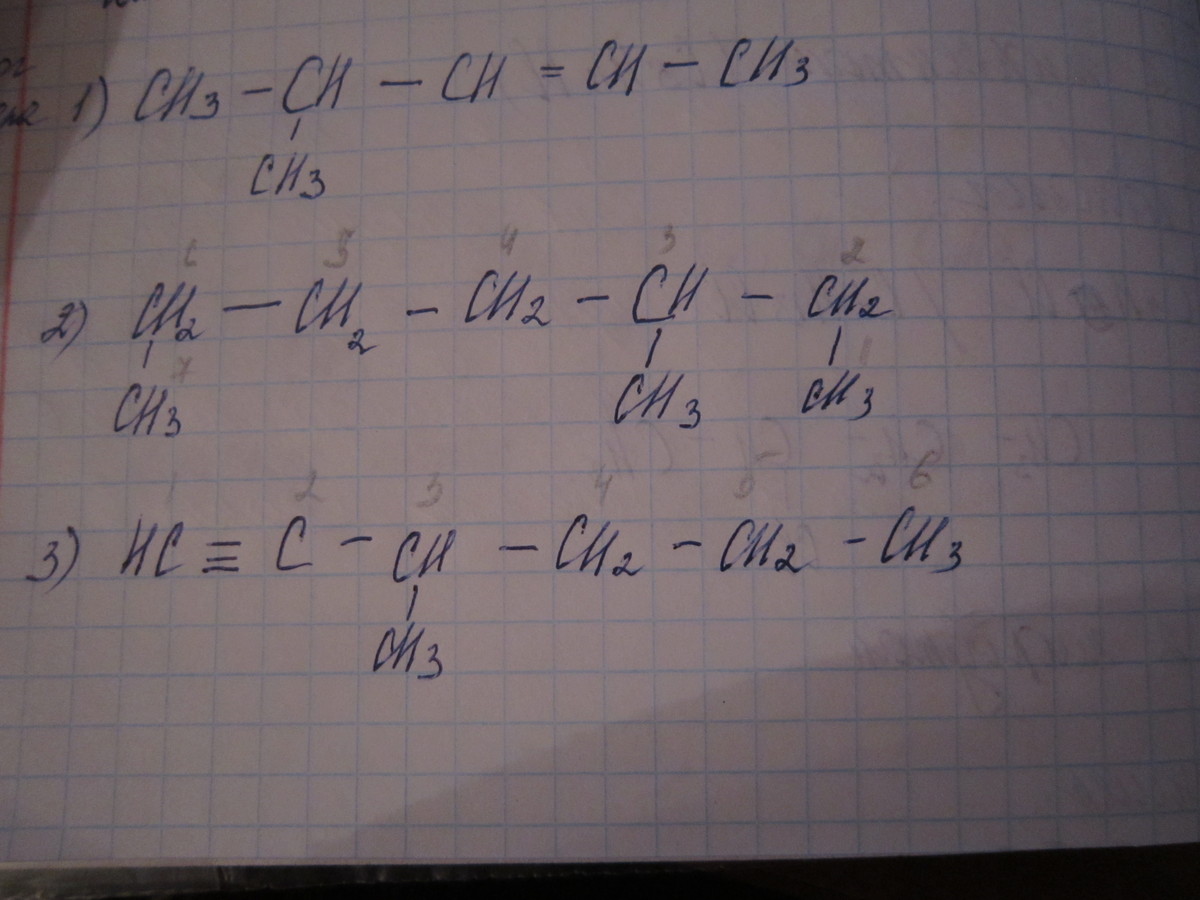 1) CH3 – CH – CH = CH – CH3
CH3
6 5 4 3 2
2) CH2 – CH2 – CH2 – CH – CH2
7 1
CH3 CH3 CH3
1 2 3 4 5 6
3) HC ≡ C – CH – CH2 – CH2 – CH3
CH3